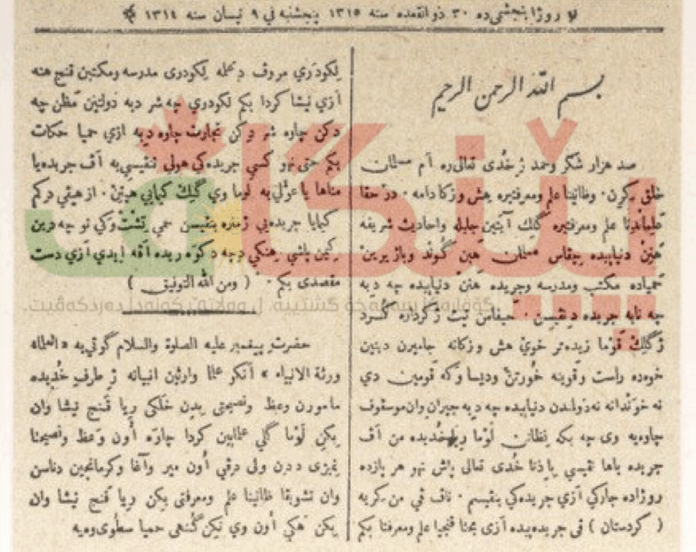 روژا پنجشی‌ده ۳۰ ذوالقعده سنه ۱۳۱۵ پنجشنبه فی ۹ نیسان سنه ۱۳۱٤
بسم الله الرحمن الرحیم
صد هزار شکر وحمد ژ خدی تعالی‌ره ام مسلمان
خلق کرن ۰ وظانینا علم ومعرفتیره هش وزکا دامه ۰ در حقا
علماندنا علم ومعرفتیره گلك آیتین جلیله واحادیث شریفه
هنن دنیاییده چقاس مسلمان هین گوند وباژیرین
همیاده مکتب ومدرسه وجریده هنن دنیاییده چه دبه
چه نابه جریده دنفیسن ۰ حیفاس تیت ژ کرداره کرد
ژ گلك قوما زیده‌تر خوی هش وزکانه جامیرن دینین
خوده راست وقوینه خورتن ودیسا وکه قومین دی
نه خوندانه نه دولمدن دنیاییده چه دبه جیران وان موسقوف
چاوه‌یه وی چه بکه نظانن لوما ریا خدیده من اف
جریده یاها نفیسی یا ذنا خدی تعالی پاش نهو هر پازده
روژاده جارکی ازی جریدکی بنفیسم ۰ ناف فی من کریه
( کردستان ) فی جریده‌یده ازی بحثا قنجیا علم ومعرفتا بکم
لکودری مروف دعمله لکودری مدرسه ومکتبین قنج هنه
ازی نیشا کردا بکم لکودری چه شر دبه دولتین مظن چه
دکن چاوه شر دکن تجارت چاوه دبه ازی حمیا حکات
بکم حتی نهو کسی جریده‌کی هولی ننفیسی‌یه اف جریده‌یا
مناها یا عولی‌یه لوما وی گلك کیماسی هینن ۰ از هیفی دکم
کیماسیا جریده‌یی ژمنره بنفیسن حمی تشت وکی نو چه دبن
رکین پاشی هنکی دچه دکوه ریده افه ایدی ازی دست
مقصدی بکم ۰ ( ومن الله التوفیق )
حضرت پیغمبر علیه الصلوة والسلام گوتی‌یه « العلماء
ورثة الانبیاء » انکو علما وارثین انبیانه ژ طرف خدیده
مامورن وعظ ونصیحتی بدن خلکی ریا قنج نیشا وان
بکن لوما گلی علمایین کردا چاوه اون وعظ ونصیحتا
نمیژی ددن ولی درقی اون میر واغا وکرمانجین دناسن
وان تشویقا ظانینا علم ومعرفتی بکن ریا قنج نیشا وان
بکن هکی اون وی نیکن گنهی حمیا سطوی‌وه‌یه
پێنگاڤ
کۆڤاره‌کا سیاسی گشتییه، ل وه‌لاتێ کوردا ده‌ردکه‌ڤیت.